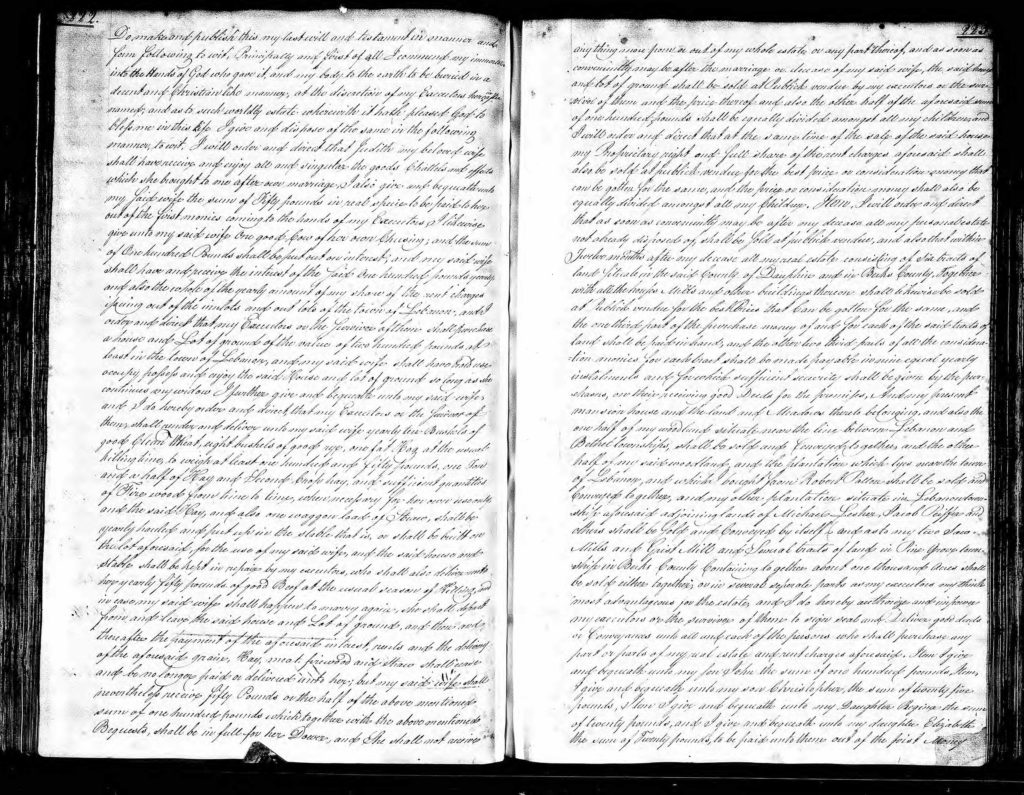 442.
Do make and publish this my last will and testament in manner and
form following to wit, Principally and First of all I commend my immortal
into the Hands of God who gave it, and my body to the earth to be buried in a
decent and Christian like manner, at the discretion of my Executors hereafter
named; and as to such worldly estate wherewith it hath pleased God to
bless me in this life I give and dispose of the same in the following
manner, to wit, I will order and direct that Judith my beloved wife
shall have receive and enjoy all and singular the goods Chattles and effects
which she brought to me after our marriage I also give and bequeath unto
my said wife the sum of Fifty pounds in real specie to be paid to her
out of the first monies coming to the hands of my Executors I likewise
give unto my said wife One good Cow of her own Chusing; and the sum
of One hundred Pounds shall be put out on interest; and my said wife
shall have and receive the interest of the said One hundred pounds yearly
and also the whole of the yearly amount of my share of the rent charges
issuing out of the inlots and out lots of the town of Lebanon, and I
order and direct that my Executors or the survivor of them shall purchase
a house and Lot of ground of the value of two hundred pounds at
least in the town of Lebanon, and my said wife shall have hold use
occupy possess and enjoy the said House and lot of ground so long as she
continues my widow I further give and bequeath unto my said wife
and I do hereby order and direct that my Executors or the survivor of
them, shall render and deliver unto my said wife yearly ten Bushels of
good Clean Wheat, eight bushels of good rye, one fat Hog at the usual
killing time, to weigh at least one hundred and fifty pounds, one Ton
and a half of Hay and Second Crop hay, and sufficient quantities
of Fire wood from time to time, when necessary for her own use only
and the said Hay, and also one waggon load of Straw, shall be
yearly hauled and put up in the stable that is, or shall be built on
the lot aforesaid for the use of my said wife, and the said house and
stable shall be kept in repair by my executors, who shall also deliver unto
her yearly fifty pounds of good Beef at the usual season of Killing, and
in case my said wife shall happen to marry again She shall depart
from and leave the said house and Lot of ground, and then and
thereafter the payment of the aforesaid interest, rents and the delivery
of the aforesaid grain, Hay, meat firewood and straw shall cease
and be no longer paid or delivered unto her; but my said wife shall
nevertheless receive Fifty Pounds or the half of the above mentioned
sum of one hundred pounds which together with the above mentioned
Bequests, shall be in full for her Dower, and She shall not receive
443
any thing more from or out of my whole estate, or any part thereof, and as soon as
conveniently may be after the marriage or decease of my said wife, the said house
and lot of ground shall be sold at Publick vendue by my executors or the sur-
vivor of them and the price thereof and also the other half of the aforesaid sum
of one hundred pounds shall be equally divided amongst all my children, and
I will order and direct that at the same time of the sale of the said house
my Proprietary right and full share of the rent charges aforesaid shall
also be sold at publick vendue for the best price or consideration money that
can be gotten for the same, and the price or consideration money shall also be
equally divided amongst all my Children. Item, I will order and direct
that as soon as conveniently may be after my decease all my personal estate
not already disposed of, shall be Sold at publick vendue, and also that within
Twelve months after my decease all my real estate consisting of Six tracts of
land Situate in the said County of Dauphine and in Berks County, Together
with all the houses Mills and other buildings thereon shall likewise be sold
at Publick vendue for the best Prices that Can be gotten for the same, and
the one third part of the purchase money of and for each of the said tracts of
land shall be paid in hand, and the other two third parts of all the considera-
tion monies for each tract shall be made payable in nine equal yearly
instalments and for which sufficient security shall be given by the pur-
chasers, on their receiving good Deeds for the premises, And my present
mansion house and the land and Meadows thereto belonging, and also the
one half of my woodland situate near the line between Lebanon and
Bethel townships, shall be sold and Conveyed together, and the other
half of my said woodland, and the plantation which lyes near the town
of Lebanon, and which I bought from Robert Patton shall be sold and
Conveyed together, and my other plantation situate in Lebanon town-
ship aforesaid adjoining lands of Michael Lesher, Jacob and
others shall be Sold and Conveyed by itself and as to my two Saw
Mills and Grist Mill and Several tracts of land in Pine Grove town-
ship in Berks County Containing together about one thousand Acres shall
be sold either together, or in several seperate parts as my executors may think
most advantageous for the estate, and I do hereby authorize and impower
my executors or the survivor of them to sign seal and Deliver good deeds
or Conveyances with all and each of the persons who shall purchase my
part or parts of my real estate and rent charges aforesaid. Item I give
and bequeath unto my son John the sum of one hundred pounds Item,
I give and bequeath unto my son Christopher, the sum of twenty five
pounds, Item I give and bequeath unto my Daughter Regina the sum
of twenty pounds, and I give and bequeath unto my daughter Elizabeth
the sum of Twenty pounds, to be paid unto them out of the first Money